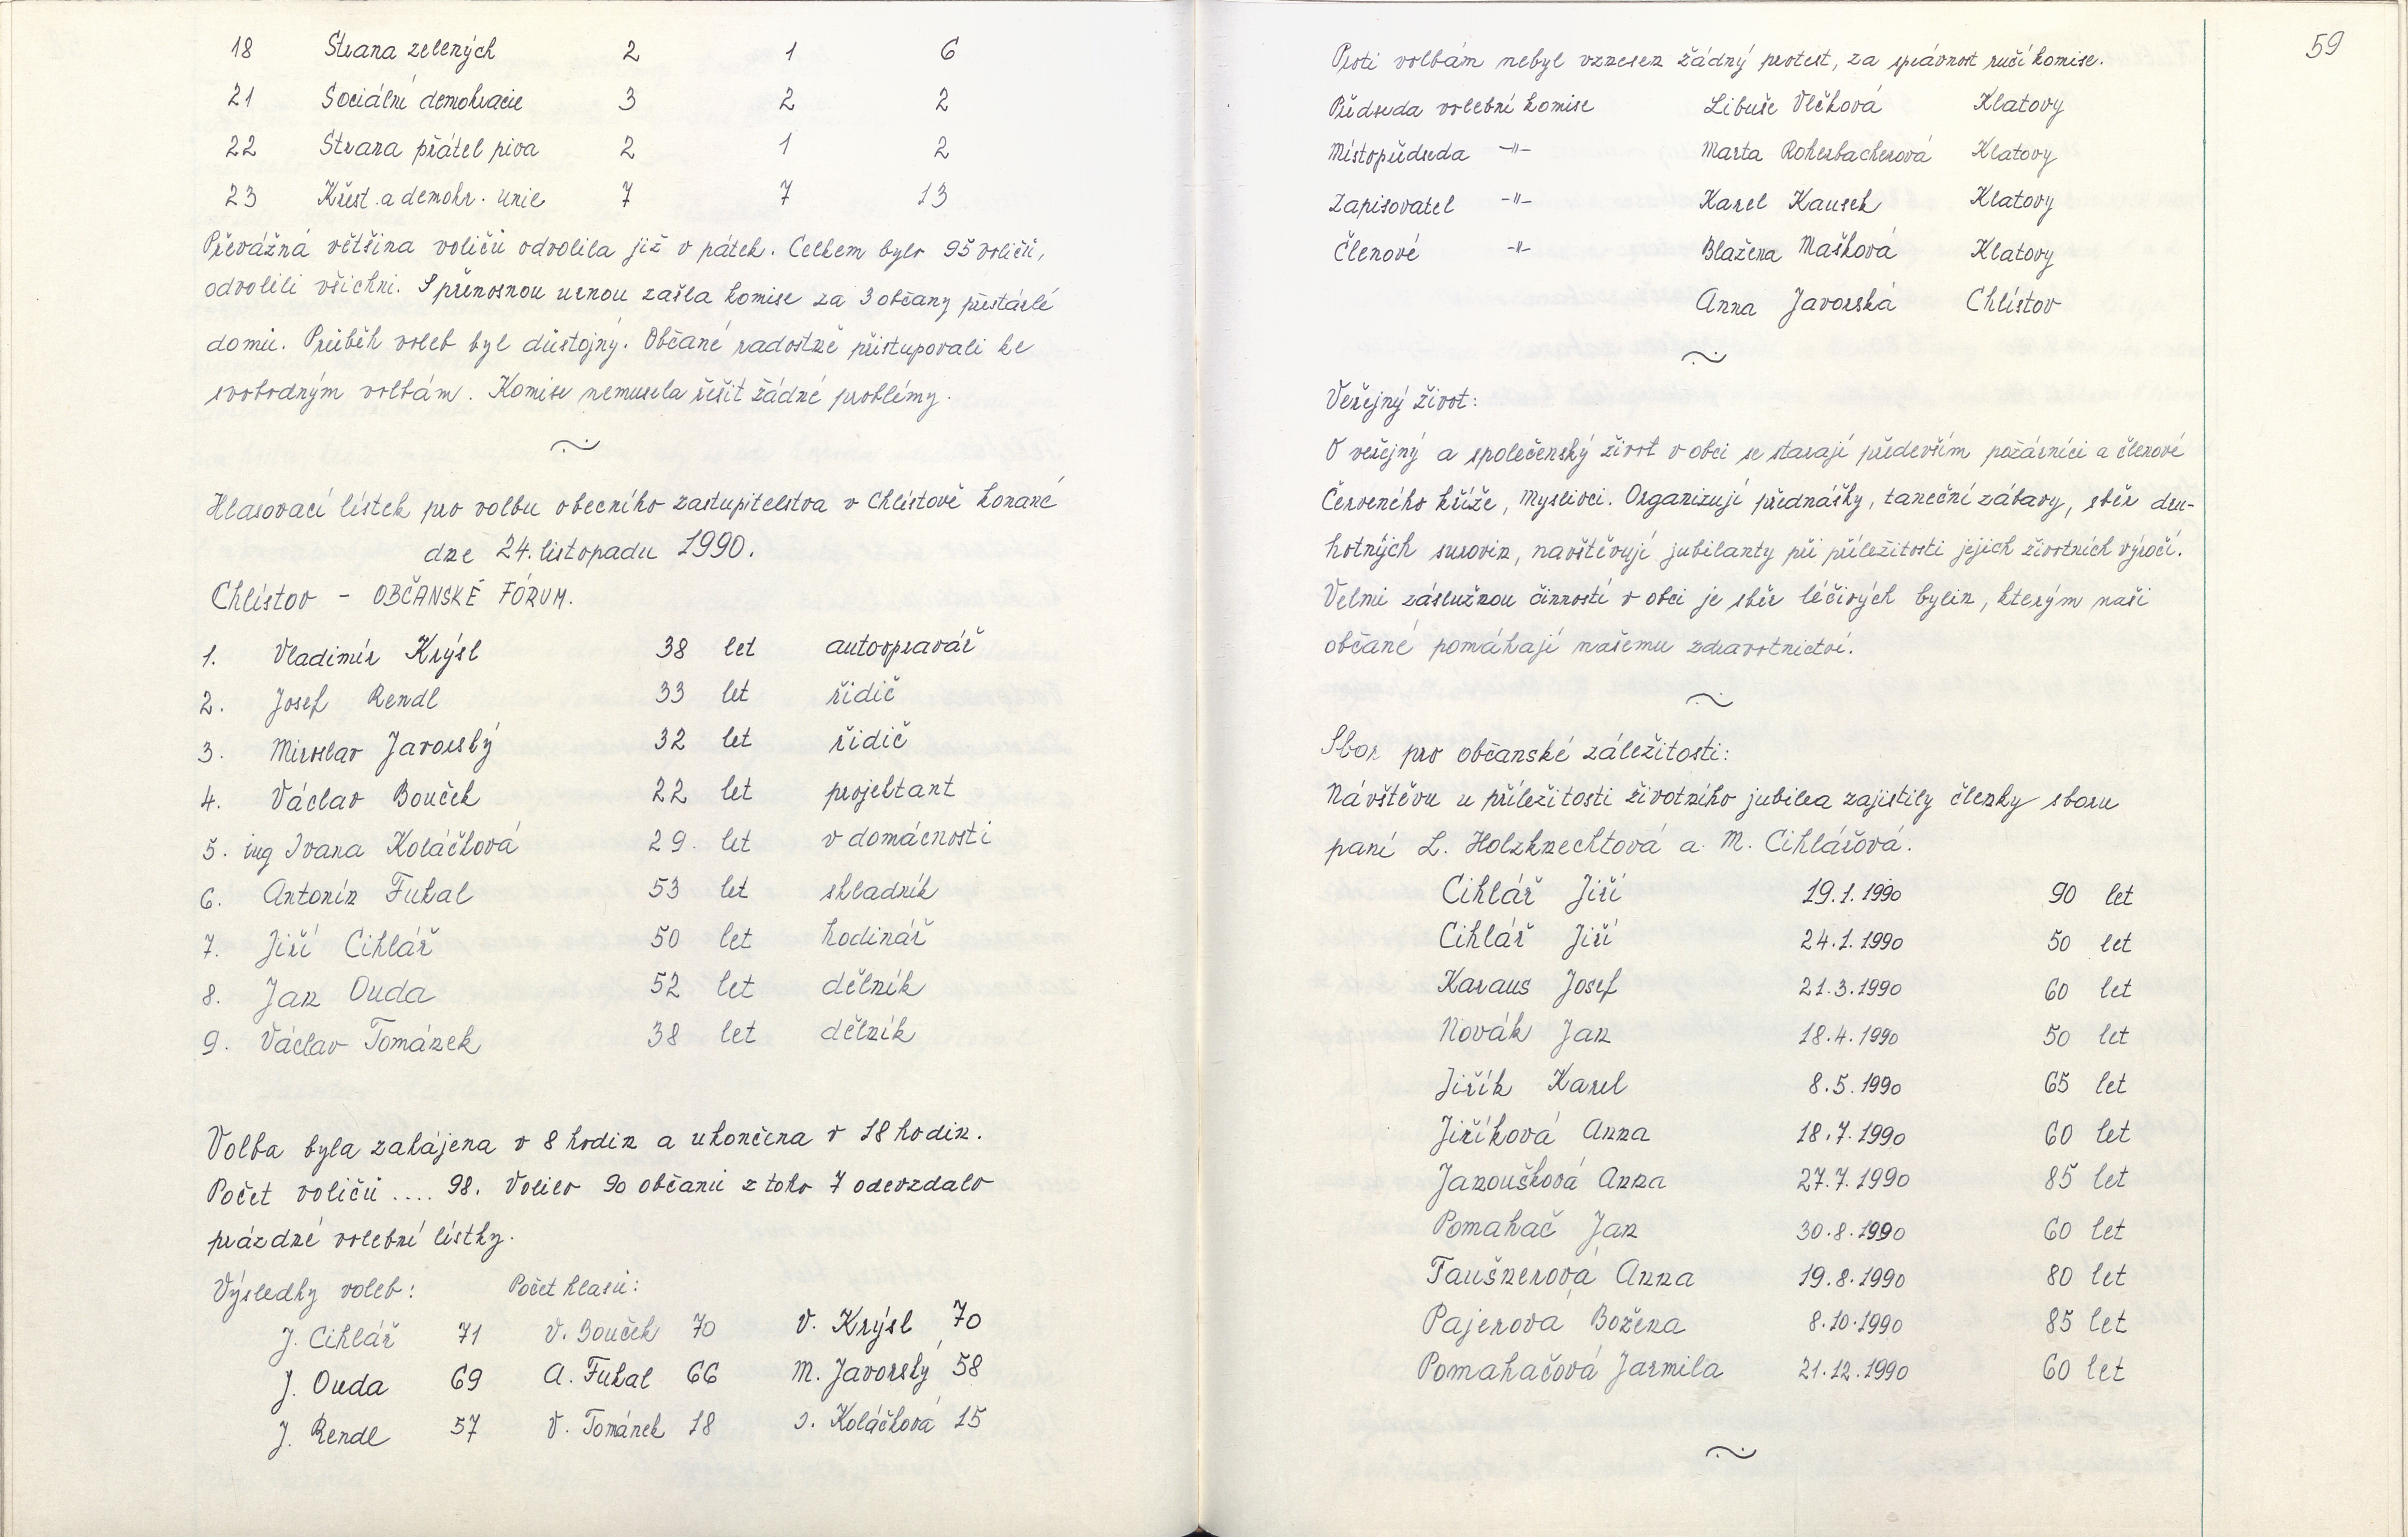 18 Strana zelených 2 1 6
21 Sociální demokracie 3 2 2
22 Strana přátel piva 2 1 2
23 Křest. a demokr. unie 7 7 13
Převážná většina voličů odvolila již v pátek. Celkem bylo 95 voličů,
odvolili všichni. S přenosnou urnou zašla komise za 3 občany přestárlé
domů. Průběh voleb byl důstojný. Občané radostně přistupovali ke
svobodným volbám. Komise nemusela řešit žádné problémy.
Hlasovací lístek pro volbu obecního zastupitelstva v Chlístově konané
dne 24. listopadu 1990.
Chlístov - OBČANSKÉ FÓRUM.
1. Vladimír Krýsl 38 let autoopravář
2. Josef Rendl 33 let řidič
3. Miroslav Javorský 32 let řidič
4. Václav Bouček 22 let projektant
5. ing Ivana Koláčková 29. let v domácnosti
6. Antonín Fukal 53 let skladník
7. Jiří Cihlář 50 let hodinář
8. Jan Ouda 52 let dělník
9. Václav Tománek 38 let dělník
Volba byla zahájena v 8 hodin a ukončena v 18 hodin.
Počet voličů .... 98. Volilo 90 občanů z toho 7 odevzdalo
prázdné volební lístky.
Výsledky voleb: Počet hlasů:
J. Cihlář 71 V. Bouček 70 V. Krýsl 70
J. Ouda 69 A. Fukal 66 M. Javorský 58
J. Rendl 57 V. Tománek 18 I. Koláčková 15
59
Proti volbám nebyl vznesen žádný protest, za správnost ručí komise.
Předseda volební komise Libuše Vlčková Klatovy
Místopředseda -"- Marta Roherbacherová Klatovy
Zapisovatel -"- Karel Kausek Klatovy
Členové -"- Blažena Mašková Klatovy
Anna Javorská Chlístov
Veřejný život:
O veřejný a společenský život v obci se starají především požárníci a členové
Červeného kříže, Myslivci. Organizují přednášky, taneční zábavy, sběr dru-
hotných surovin, navštěvují jubilanty při příležitosti jejich životních výročí.
Velmi záslužnou činností v obci je sběr léčivých bylin, kterým naši
občané pomáhají našemu zdravotnictví.
Sbor pro občanské záležitosti:
Návštěvu u příležitosti životního jubilea zajistily členky sboru
paní L. Holzknechtová a M. Cihlářová.
Cihlář Jiří 19.1.1990 90 let
Cihlář Jiří 24.1.1990 50 let
Karaus Josef 21.3.1990 60 let
Novák Jan 18.4.1990 50 let
Jiřík Karel 8.5.1990 65 let
Jiříková Anna 18.7.1990 60 let
Janoušková Anna 27.7.1990 85 let
Pomahač Jan 30.8.1990 60 let
Taušnerová Anna 19.8.1990 80 let
Pajerová Božena 8.10.1990 85 let
Pomahačová Jarmila 21.12.1990 60 let